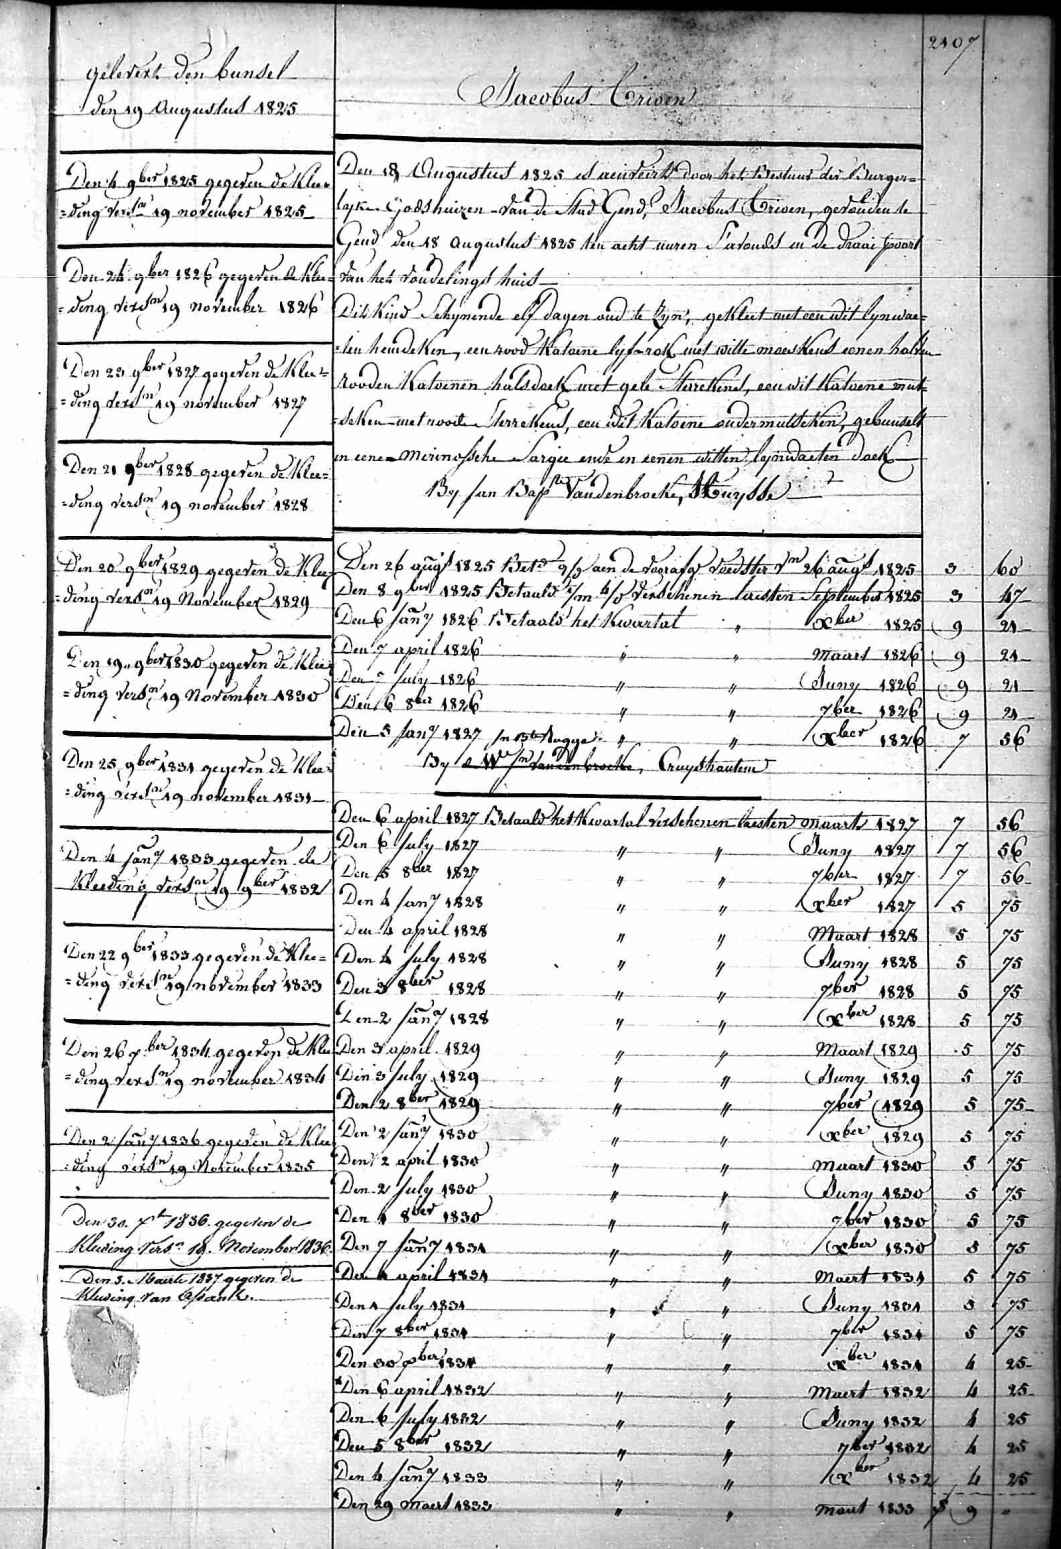 2107
gelevert den bunsel
den 19 Augustus 1825
Den 4 9ber 1825 gegeven de Klee=
=ding versn 19 november 1825
Den 24 9ber 1826 gegeven de Klee=
=ding versn 19 november 1826
Den 23 9ber 1827 gegeven de Klee=
=ding versn 19 november 1827
Den 21 9ber 1828 gegeven de Klee=
=ding versn 19 november 1828
Den 20 9ber 1829 gegeven de Klee=
=ding versn 19 November 1829
Den 19 9ber 1830 gegeven de Klee=
=ding versn 19 November 1830
Den 25 9ber 1831 gegeven de Klee=
=ding versn 19 november 1831
Den 4 Jany 1833 gegeven de
Kleeding versn 19 9ber 1832
Den 22 9ber 1833 gegeven de Klee=
=ding versn 19 november 1833
Den 26 9ber 1834 gegeven de Klee
=ding versn 19 november 1834
Den 2 Jany 1836 gegeven de Klee
=ding versn 19 November 1835
Den 30 1836 gegeven de
Kleeding versn 19 November 1836
Den 3 Maerte 1837 gegeven de
Kleeding van
Jacobus Criven
Den 18 Augustus 1825 is door het Bestuur der Burger=
lyke Godshuizen van de Stad Gend, Jacobus Criven, gevonden te
Gend den 18 augustus 1825 ten acht uuren S'avonds in de draai poort
van het vondelings huis
Dit Kind Schynende elf dagen oud te Zyn, gekleet met een wit lynwae=
=ten hemdeken, een rood Katoene lyf-rok met witte moeskens eenen halven
rooden Katoenen halsdoek met gele Sterrekens, een wit Katoene mut=
=seken met roode Sterrekens, een wit Katoene ondermutseken, gebunselt
in eene merinossche Sargie ende in eenen witten lynwaeten doek
By Jan Bapte Vandenbroeke, Huysse
Den 26 augt 1825 Betd aen de voedster 26 augt 1825 3 60
Den 8 9ber 1825 Betaald verschenen laesten September 1825 3 47
Den 6 Jany 1826 Betaald het Kwartal " xber 1825 9 21
Den 7 april 1826 " " Maart 1826 9 21
Den July 1826 " " Juny 1826 9 21
Den 6 8ber 1826 " " 7ber 1826 9 21
Den 5 Jany 1827 " " xber 1826 7 56
By Vandenbroeke, Cruyshautem
Den 6 april 1827 Betaald het Kwartal verschenen laesten maart 1827 7 56
Den 6 July 1827 " " Juny 1827 7 56
Den 5 8ber 1827 " " 7ber 1827 7 56
Den 4 Jany 1828 " " xber 1827 5 75
Den 4 april 1828 " " Maart 1828 5 75
Den 4 July 1828 " " Juny 1828 5 75
Den 3 8ber 1828 " " 7ber 1828 5 75
Den 2 Jany 1828 " " xber 1828 5 75
Den 3 april 1829 " " Maart 1829 5 75
Den 3 July 1829 " " Juny 1829 5 75
Den 2 8ber 1829 " " 7ber 1829 5 75
Den 2 Jany 1830 " " xber 1829 5 75
Den 2 april 1830 " " maart 1830 5 75
Den 2 July 1830 " " Juny 1830 5 75
Den 1 8ber 1830 " " 7ber 1830 5 75
Den 7 Jany 1831 " " xber 1830 5 75
Den 4 april 1831 " " Maert 1831 5 75
Den 1 July 1831 " " Juny 1831 5 75
Den 7 8ber 1831 " " 7ber 1831 5 75
Den 30 xber 1831 " " xber 1831 4 25
Den 6 april 1832 " " Maert 1832 4 25
Den 6 July 1832 " " Juny 1832 4 25
Den 5 8ber 1832 " " 7ber 1832 4 25
Den 4 Jany 1833 " " xber 1832 4 25
Den 29 maert 1833 " " maert 1833 9 "